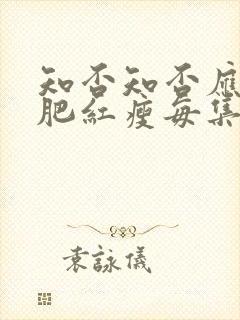 知否知否應
肥紅瘦每集
袁詠儀